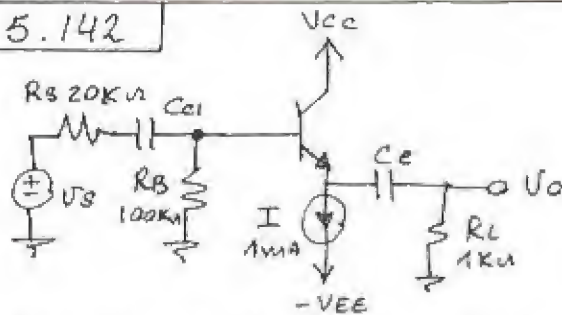 5.142
Vcc
Rs 20Kω
Cc1
+
-
Vs
RB
100Kω
Ce
Vo
I
1mA
RL
1Kω
-VEE